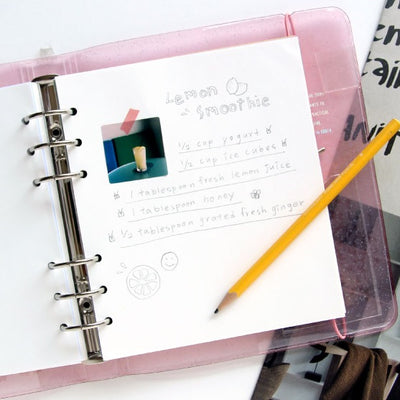 Lemon
Smoothie
1/2 cup yogurt
1/2 cup ice cubes
1 tablespoon fresh lemon juice
1 tablespoon honey
1/2 tablespoon grated fresh ginger